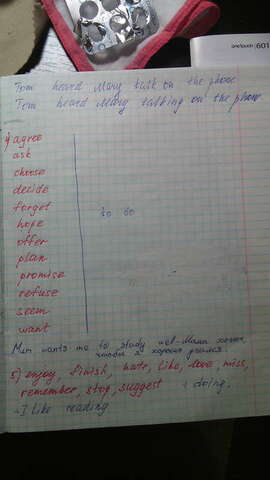 onetouch 601
Tom heard Mary talk on the phone
Tom heard Mary talking on the phone
4) agree
ask
choose
decide
forget
to do
hope
offer
plan
promise
refuse
seem
want
Mum wants me to study well - Мама хочет,
чтобы я хорошо учился.
5) enjoy, finish, hate, like, love, miss,
remember, stop, suggest + doing.
- I like reading